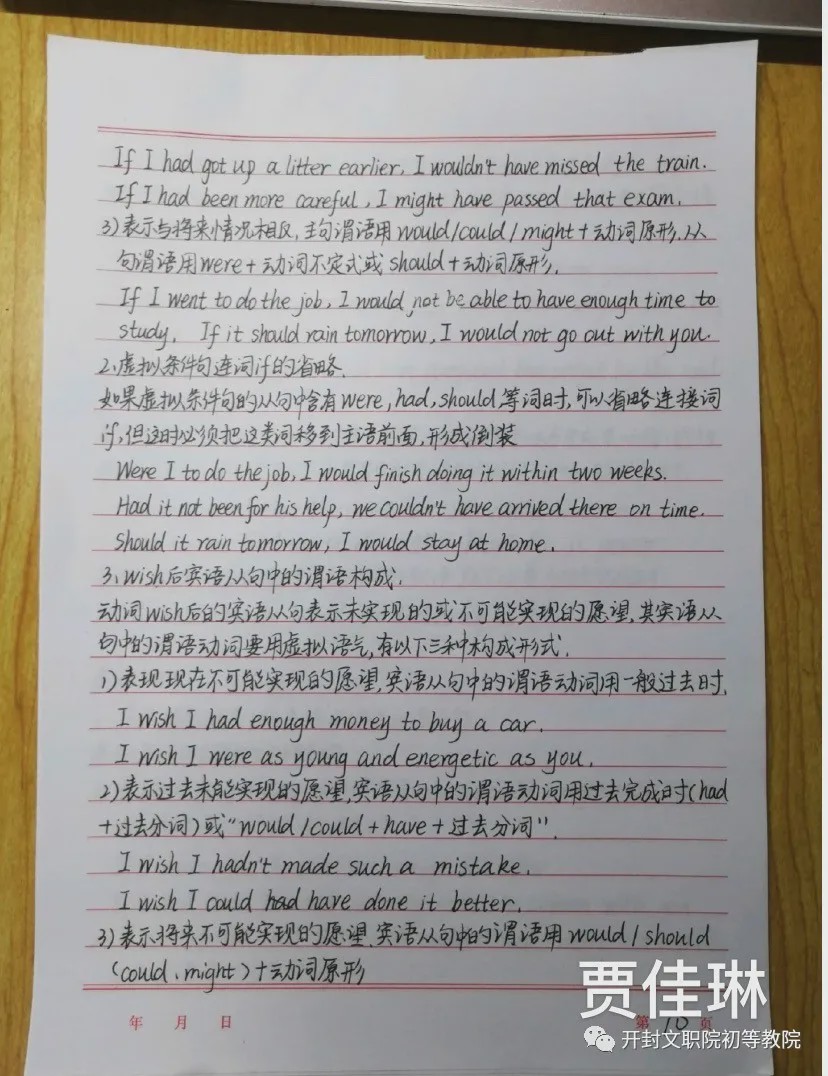 If I had got up a litter earlier, I wouldn't have missed the train.
If I had been more careful, I might have passed that exam.
3)表示与将来情况相反,主句谓语用would/could/might+动词原形.从
句谓语用were+动词不定式或should+动词原形.
If I went to do the job, I would not be able to have enough time to
study. If it should rain tomorrow, I would not go out with you.
2、虚拟条件句连词if的省略.
如果虚拟条件句的从句中含有were,had,should等词时,可以省略连接词
if,但这时必须把这类词移到主语前面,形成倒装
Were I to do the job, I would finish doing it within two weeks.
Had it not been for his help, we couldn't have arrived there on time.
Should it rain tomorrow, I would stay at home.
3、wish后宾语从句中的谓语构成.
动词wish后的宾语从句表示未实现的或不可能实现的愿望,其宾语从
句中的谓语动词要用虚拟语气,有以下三种构成形式.
1)表现现在不可能实现的愿望,宾语从句中的谓语动词用一般过去时.
I wish I had enough money to buy a car.
I wish I were as young and energetic as you.
2)表示过去未能实现的愿望,宾语从句中的谓语动词用过去完成时(had
+过去分词)或"would/could+have+过去分词".
I wish I hadn't made such a mistake.
I wish I could had have done it better.
3)表示将来不可能实现的愿望.宾语从句中的谓语用would/should
(could、might)+动词原形
年 月 日
第10页
贾佳琳
开封文职院初等教院